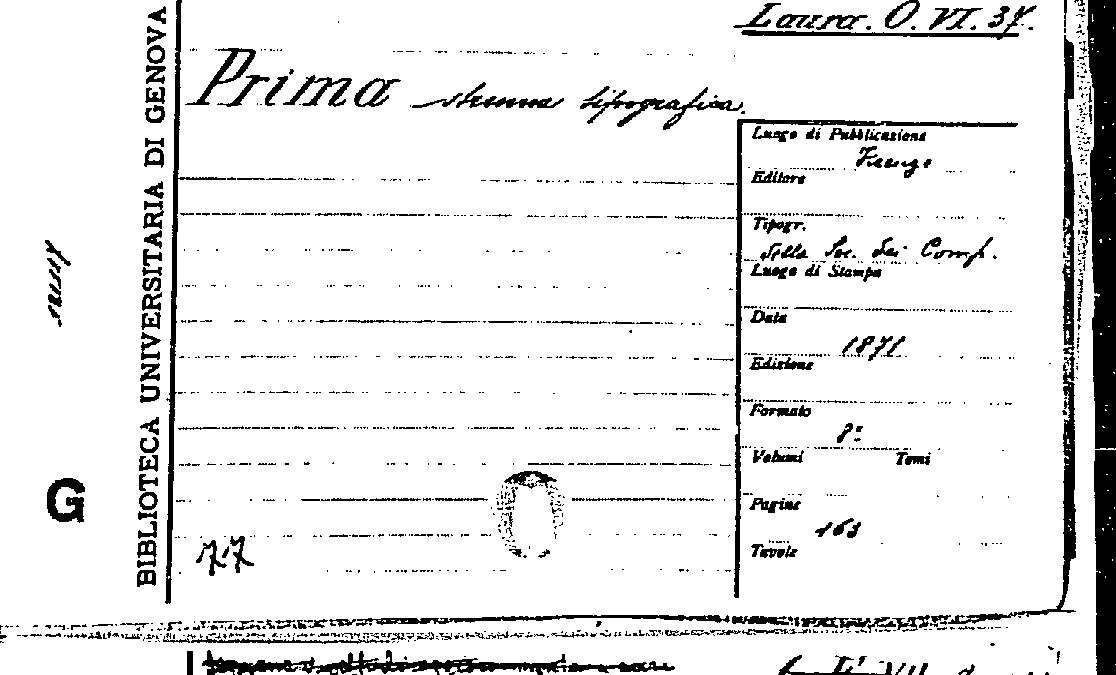 Laura. O. VI. 37.
Prima strenna tipografica.
BIBLIOTECA UNIVERSITARIA DI GENOVA
G
Luogo di Pubblicazione
Firenze
Editore
Tipogr.
della Soc. dei Comp.
Luogo di Stampa
Data
1871
Edizione
Formato
8º
Volumi Tomi
Pagine
163
Tavole
77